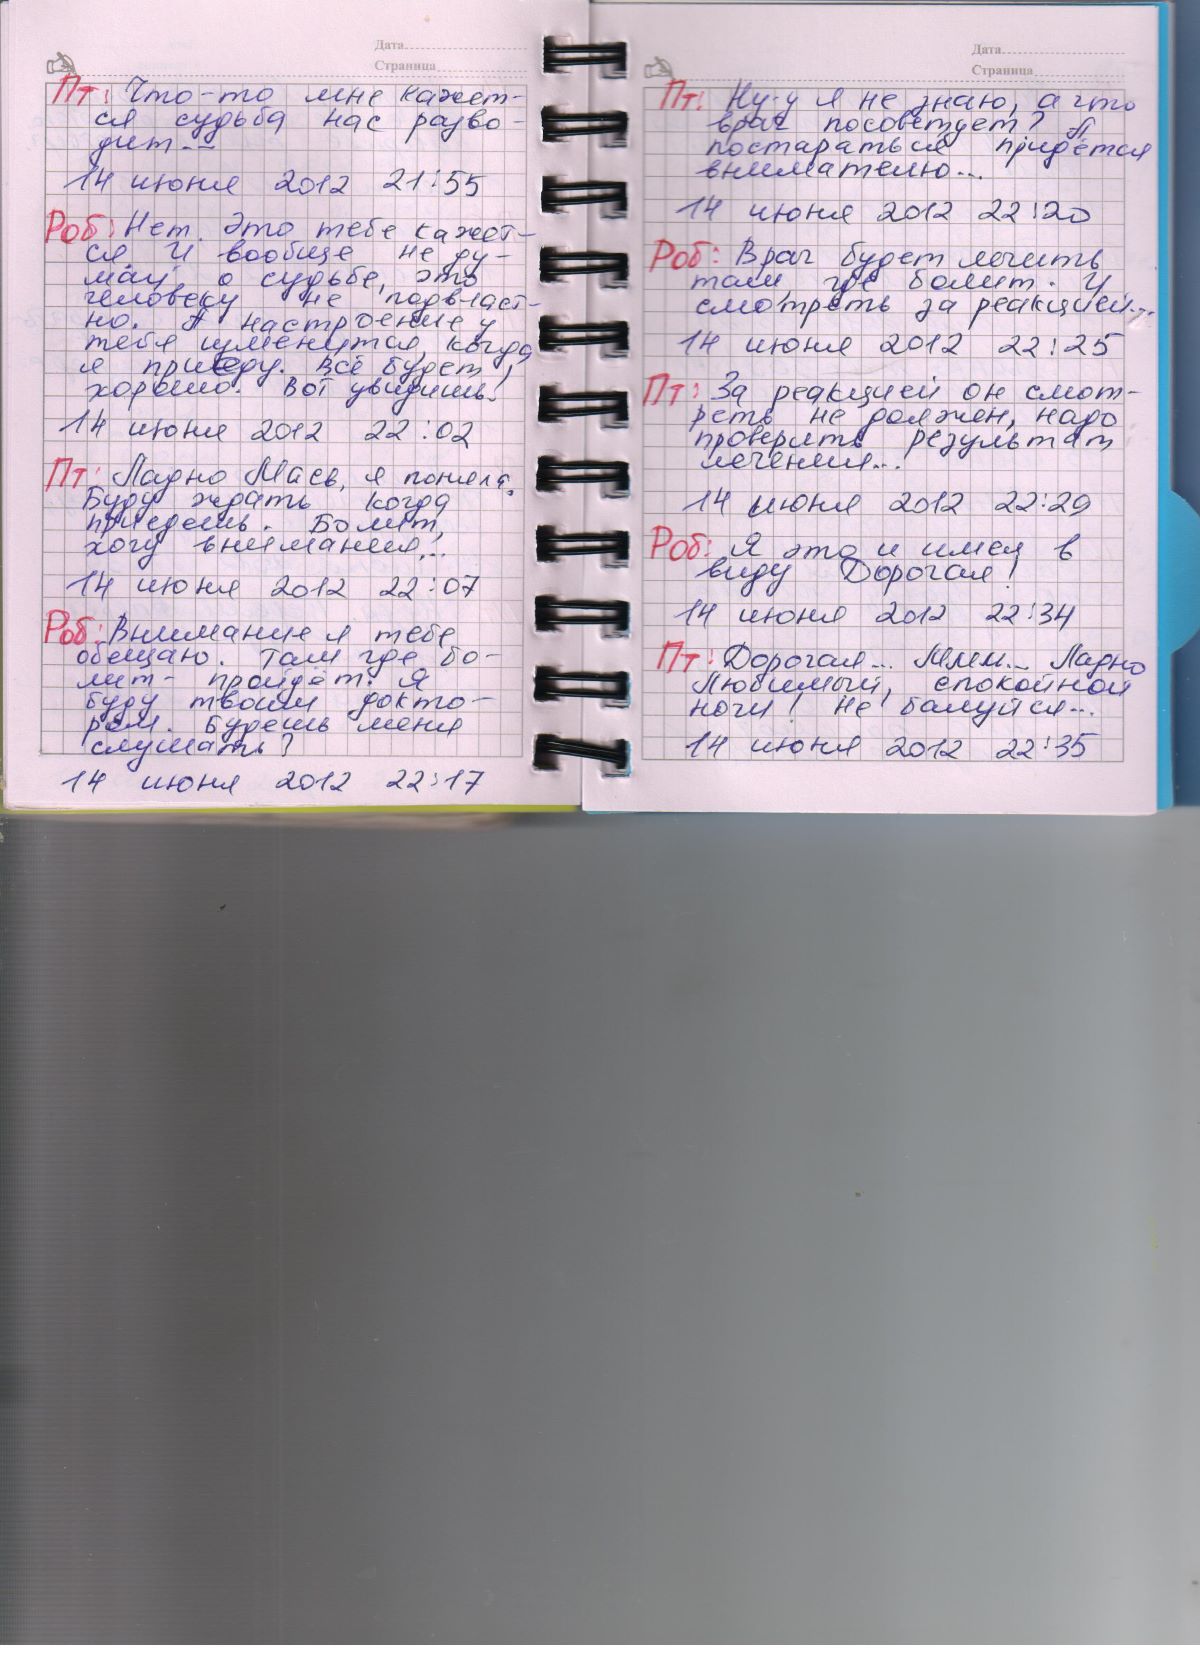 Дата
Страница
Пт: Что-то мне кажет-
ся судьба нас разво-
дит...
14 июня 2012 21:55
Роб: Нет. Это тебе кажет-
ся. И вообще не ду-
май о судьбе, это
человеку не подвласт-
но. А настроение у
тебя изменится когда
я приеду. Всё будет
хорошо! Вот увидишь!
14 июня 2012 22:02
Пт: Ладно Мась, я поняла.
Буду ждать когда
приедешь. Болит,
хочу внимания!..
14 июня 2012 22:07
Роб: Внимание я тебе
обещаю. Там где бо-
лит- пройдёт. Я
буду твоим докто-
ром. Будешь меня
слушать?
14 июня 2012 22:17
Дата
Страница
Пт: Ну-у я не знаю, а что
врач посоветует? А
постараться придётся
внимателю...
14 июня 2012 22:20
Роб: Врач будет лечить
там, где болит. И
смотреть за реакцией...
14 июня 2012 22:25
Пт: За реакцией он смот-
реть не должен, надо
проверять результат
лечения...
14 июня 2012 22:29
Роб: Я это и имел в
виду Дорогая!
14 июня 2012 22:34
Пт: Дорогая... Ммм... Ладно
Любимый, спокойной
ночи! Не балуйся...
14 июня 2012 22:35